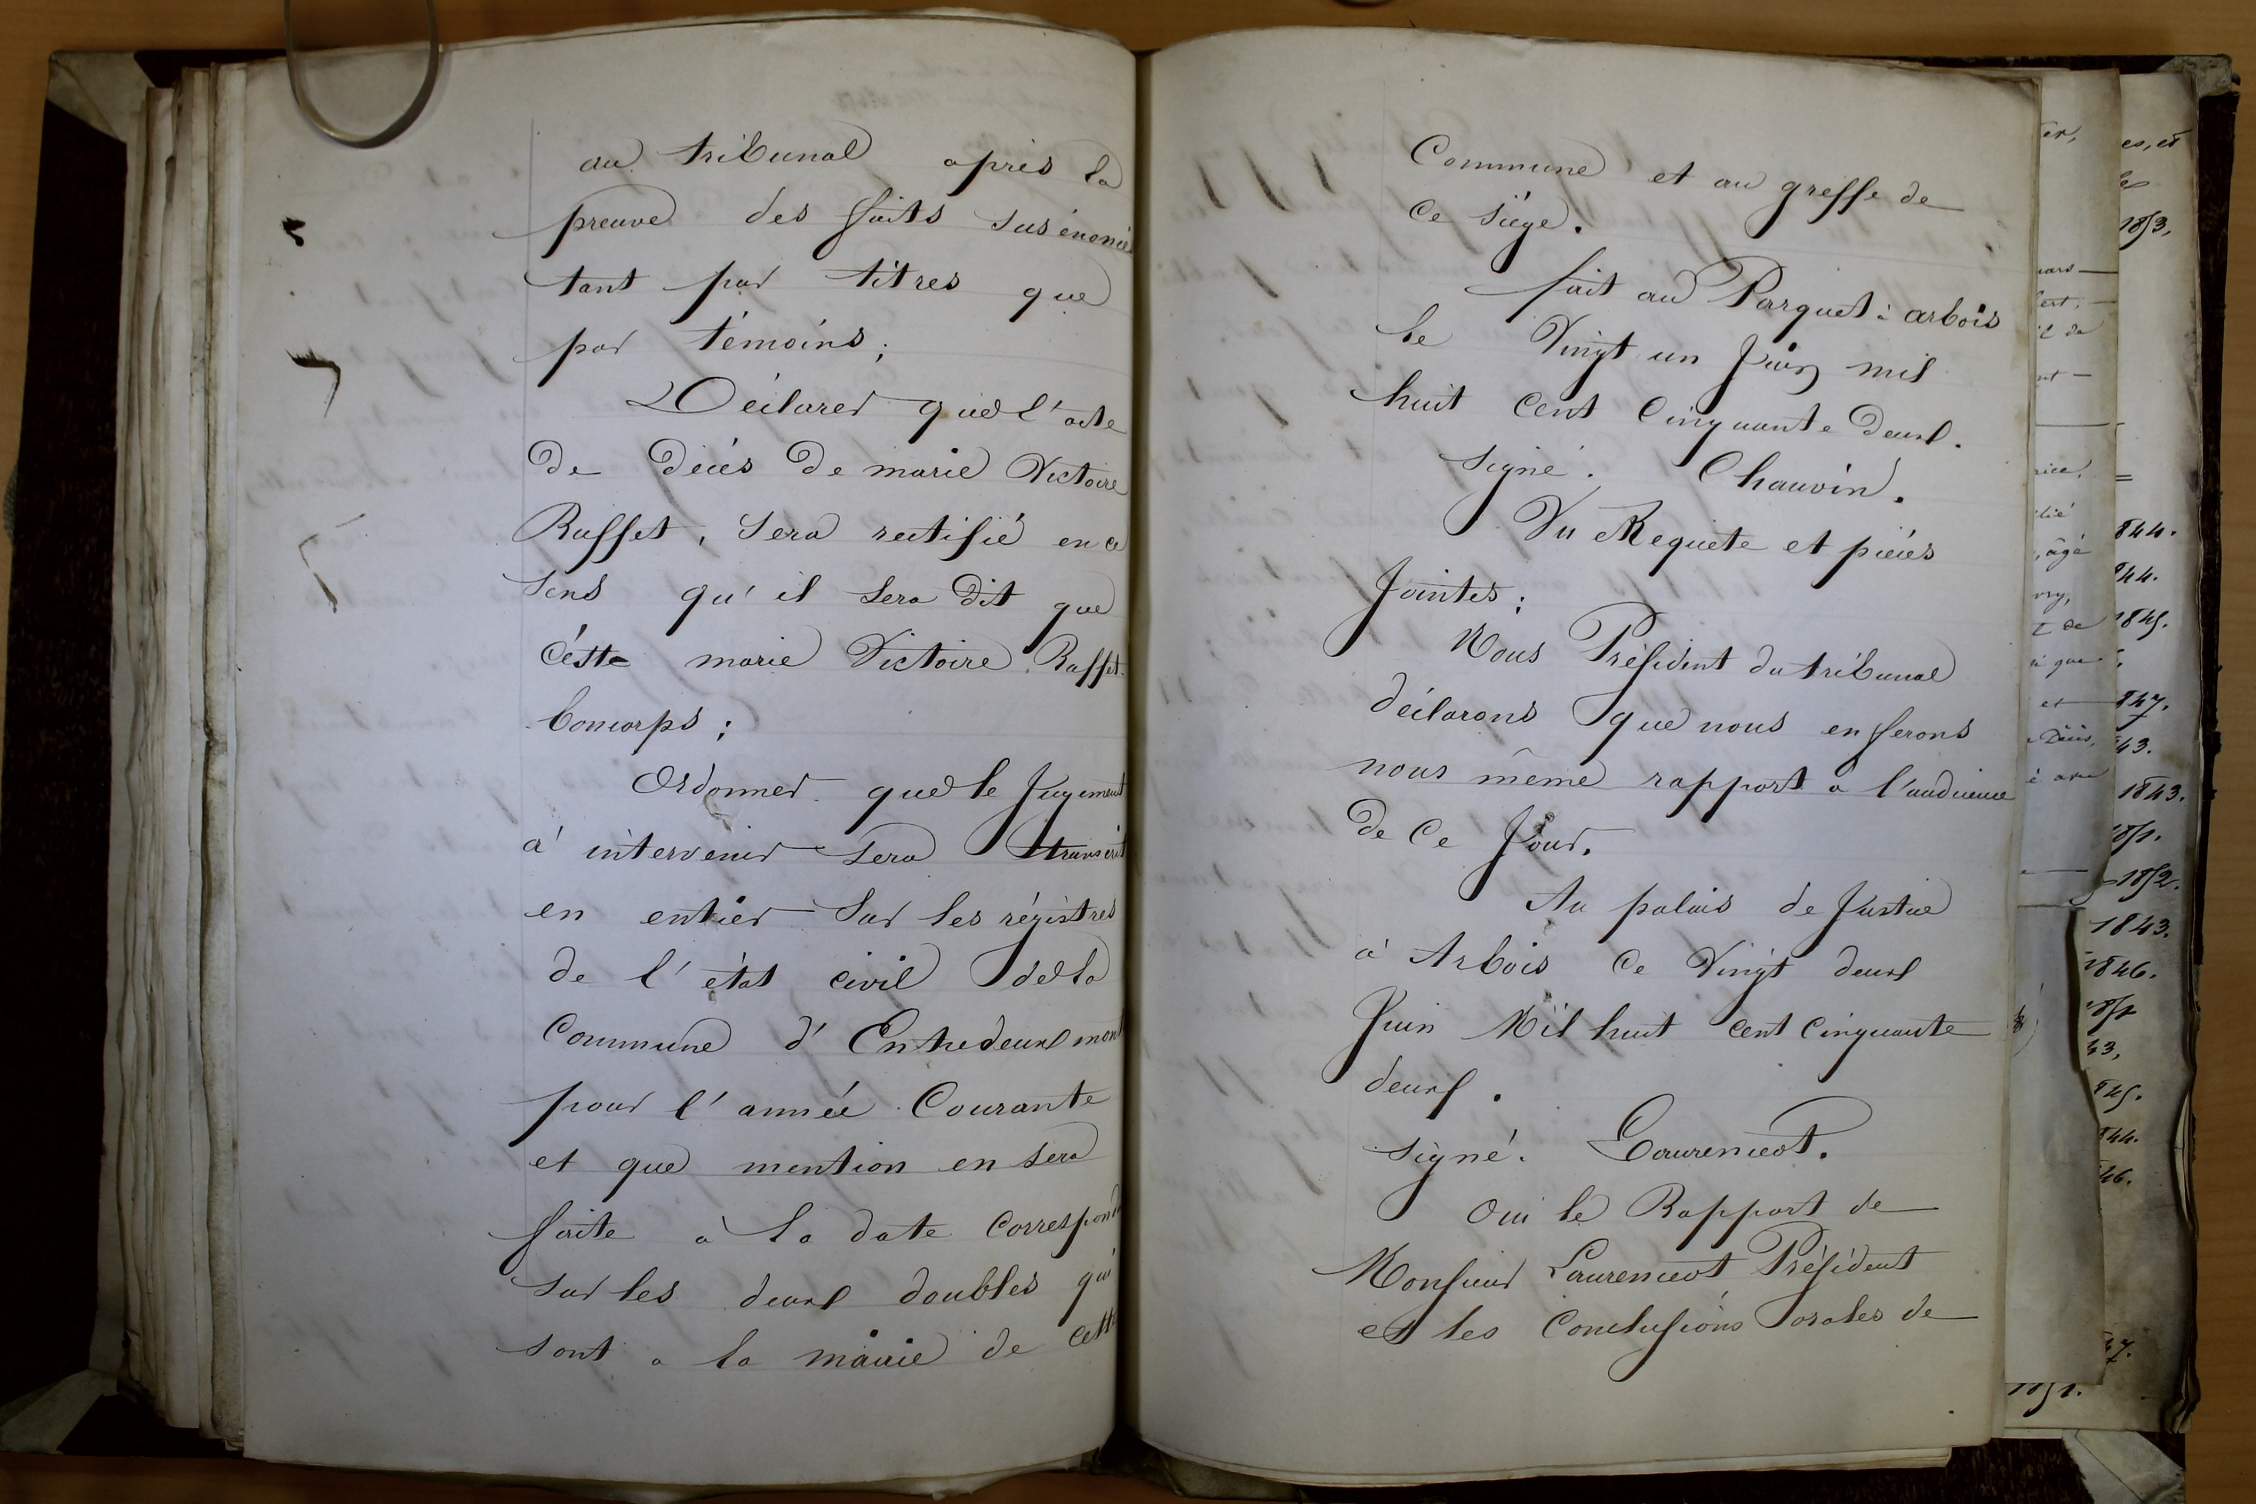 au tribunal après la
preuve des faits susénoncé
tant par titres que
par témoins ;
Déclarer que l'acte
de décès de marie Victoire
Raffet, sera rectifié en ce
sens qu'il sera dit que
c'este marie Victoire Raffet
Concorps ;
Ordonner que le Jugement
à intervenir sera transcrit
en entier sur les régistres
de l'état civil de la
Commune d'Entredeux mont
pour l'année Courante
et que mention en sera
faite à la date correspond
sur les deux doubles qui
sont a la mairie de cette
Commune et au greffe de
ce siége.
fait au Parquet à arbois
le Vingt un Juin mil
huit cent Cinquante deux.
signé. Chauvin.
Vu Requete et pièces
Jointes ;
Nous Président du tribunal
déclarons que nous en ferons
nous même rapport à l'audience
de ce Jour.
Au palais de Justice
à Arbois ce Vingt deux
Juin Mil huit cent Cinquante
deux.
signé. Laurenceot.
Oui le Rapport de
Monsieur Laurenceot Président
et les Conclusions orales de
1853,
844.
844.
1845.
847.
43.
1843.
1851.
1852.
1843.
1846.
1851
43,
845.
844.
46.
47.
1851.